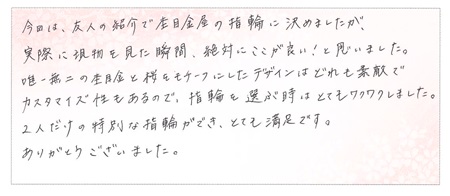 今回は、友人の紹介で杢目金屋の指輪に決めましたが、
実際に現物を見た瞬間、絶対にここが良い!と思いました。
唯一無二の杢目金と桜をモチーフにしたデザインはどれも素敵で
カスタマイズ性もあるので、指輪を選ぶ時はとてもワクワクしました。
2人だけの特別な指輪ができ、とても満足です。
ありがとうございました。